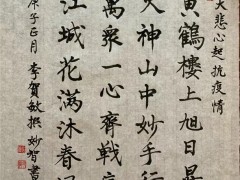 大悲心起抗疫情
黄鶴樓上旭日昇
火神山中妙手行
萬衆一心齊戰
江城花滿沐春
庚子正月李賀敏撰妙智書